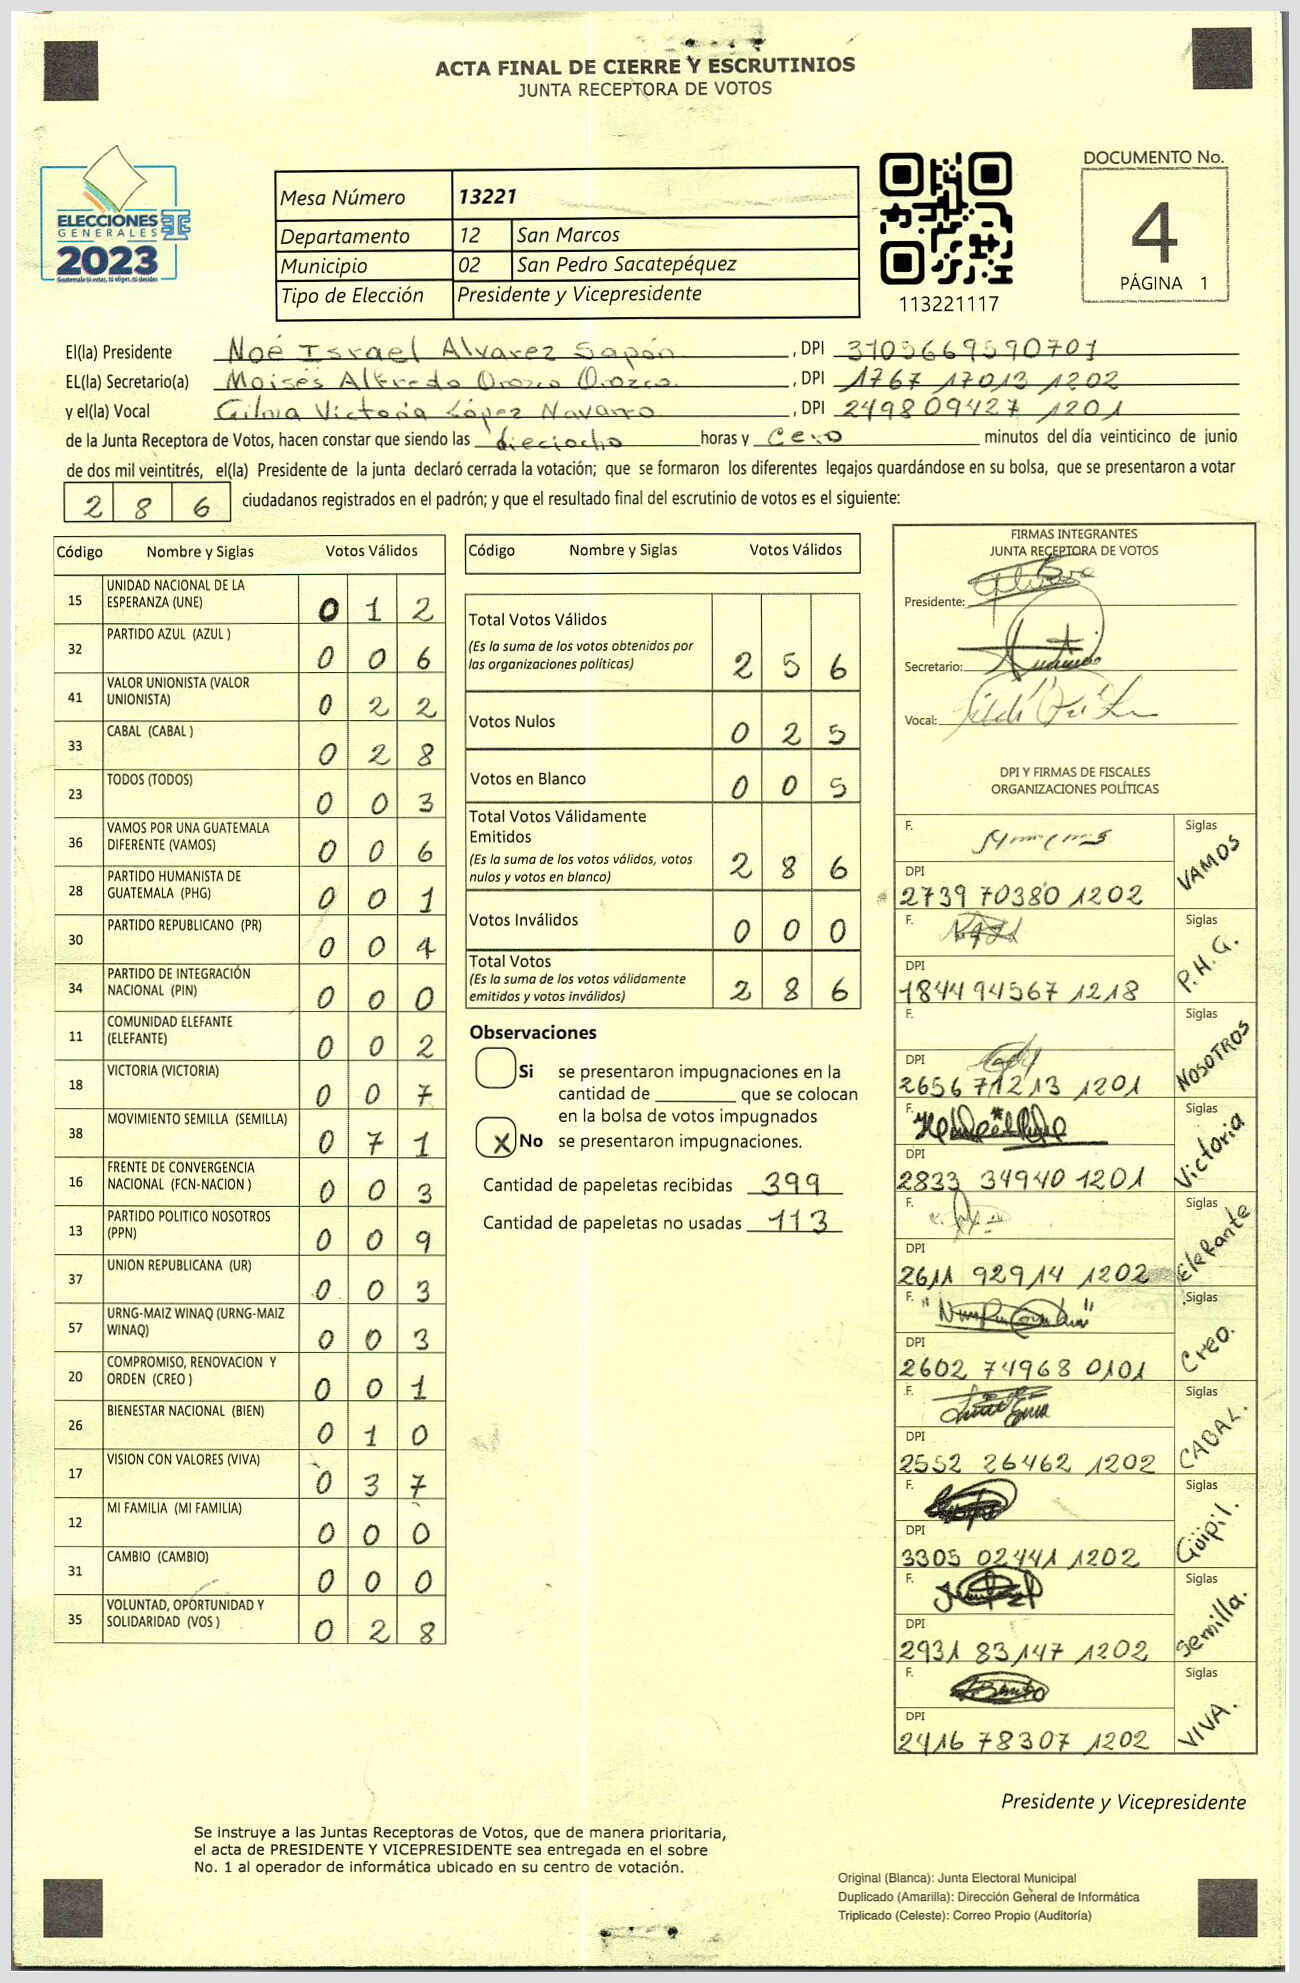 ACTA FINAL DE CIERRE Y ESCRUTINIOS
JUNTA RECEPTORA DE VOTOS
ELECCIONES
GENERALES
2023
Guatemala tú votas, tú eliges, tú decides
Mesa Número 13221
Departamento 12 San Marcos
Municipio 02 San Pedro Sacatepéquez
Tipo de Elección Presidente y Vicepresidente
113221117
DOCUMENTO No.
4
PÁGINA 1
El(la) Presidente Noé Israel Alvarez Sapón , DPI 3105669590701
EL(la) Secretario(a) Moisés Alfredo Orozco Orozco , DPI 1767 17013 1202
y el(la) Vocal Gilma Victoria López Navarro , DPI 249809427 1201
de la Junta Receptora de Votos, hacen constar que siendo las dieciocho horas y cero minutos del día veinticinco de junio
de dos mil veintitrés, el(la) Presidente de la junta declaró cerrada la votación; que se formaron los diferentes legajos guardándose en su bolsa, que se presentaron a votar
2 8 6 ciudadanos registrados en el padrón; y que el resultado final del escrutinio de votos es el siguiente:
Código Nombre y Siglas Votos Válidos
15 UNIDAD NACIONAL DE LA ESPERANZA (UNE) 0 1 2
32 PARTIDO AZUL (AZUL ) 0 0 6
41 VALOR UNIONISTA (VALOR UNIONISTA) 0 2 2
33 CABAL (CABAL ) 0 2 8
23 TODOS (TODOS) 0 0 3
36 VAMOS POR UNA GUATEMALA DIFERENTE (VAMOS) 0 0 6
28 PARTIDO HUMANISTA DE GUATEMALA (PHG) 0 0 1
30 PARTIDO REPUBLICANO (PR) 0 0 4
34 PARTIDO DE INTEGRACIÓN NACIONAL (PIN) 0 0 0
11 COMUNIDAD ELEFANTE (ELEFANTE) 0 0 2
18 VICTORIA (VICTORIA) 0 0 7
38 MOVIMIENTO SEMILLA (SEMILLA) 0 7 1
16 FRENTE DE CONVERGENCIA NACIONAL (FCN-NACION ) 0 0 3
13 PARTIDO POLITICO NOSOTROS (PPN) 0 0 9
37 UNION REPUBLICANA (UR) 0 0 3
57 URNG-MAIZ WINAQ (URNG-MAIZ WINAQ) 0 0 3
20 COMPROMISO, RENOVACION Y ORDEN (CREO ) 0 0 1
26 BIENESTAR NACIONAL (BIEN) 0 1 0
17 VISION CON VALORES (VIVA) 0 3 7
12 MI FAMILIA (MI FAMILIA) 0 0 0
31 CAMBIO (CAMBIO) 0 0 0
35 VOLUNTAD, OPORTUNIDAD Y SOLIDARIDAD (VOS ) 0 2 8
Código Nombre y Siglas Votos Válidos
Total Votos Válidos
(Es la suma de los votos obtenidos por
las organizaciones políticas) 2 5 6
Votos Nulos 0 2 5
Votos en Blanco 0 0 5
Total Votos Válidamente
Emitidos
(Es la suma de los votos válidos, votos
nulos y votos en blanco) 2 8 6
Votos Inválidos 0 0 0
Total Votos
(Es la suma de los votos válidamente
emitidos y votos inválidos) 2 8 6
Observaciones
Si se presentaron impugnaciones en la
cantidad de ________ que se colocan
en la bolsa de votos impugnados
X No se presentaron impugnaciones.
Cantidad de papeletas recibidas 399
Cantidad de papeletas no usadas 113
FIRMAS INTEGRANTES
JUNTA RECEPTORA DE VOTOS
Presidente:
Secretario:
Vocal:
DPI Y FIRMAS DE FISCALES
ORGANIZACIONES POLÍTICAS
F. Siglas VAMOS
DPI
2739 70380 1202
F. Siglas P.H.G.
DPI
1844 94567 1218
F. Siglas NOSOTROS
DPI
2656 71213 1201
F. Siglas Victoria
DPI
2833 34940 1201
F. Siglas Elefante
DPI
2611 92914 1202
F. Siglas Creo.
DPI
2602 74968 0101
F. Siglas CABAL.
DPI
2552 26462 1202
F. Siglas Güipil.
DPI
3305 02441 1202
F. Siglas Semilla.
DPI
2931 83147 1202
F. Siglas VIVA.
DPI
2416 78307 1202
Presidente y Vicepresidente
Se instruye a las Juntas Receptoras de Votos, que de manera prioritaria,
el acta de PRESIDENTE Y VICEPRESIDENTE sea entregada en el sobre
No. 1 al operador de informática ubicado en su centro de votación.
Original (Blanca): Junta Electoral Municipal
Duplicado (Amarilla): Dirección General de Informática
Triplicado (Celeste): Correo Propio (Auditoría)